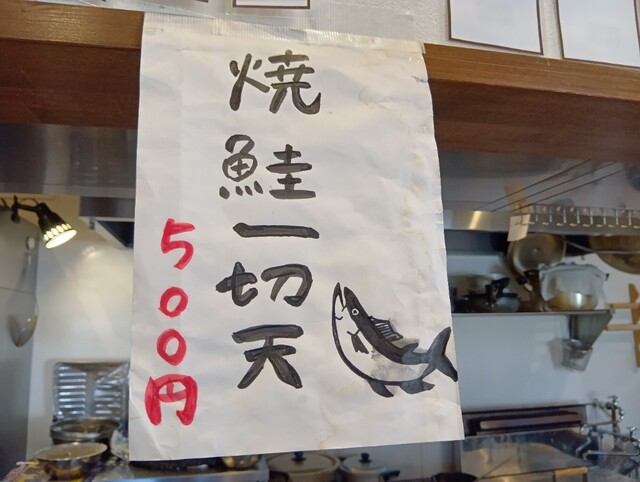 焼鮭一切天
500円